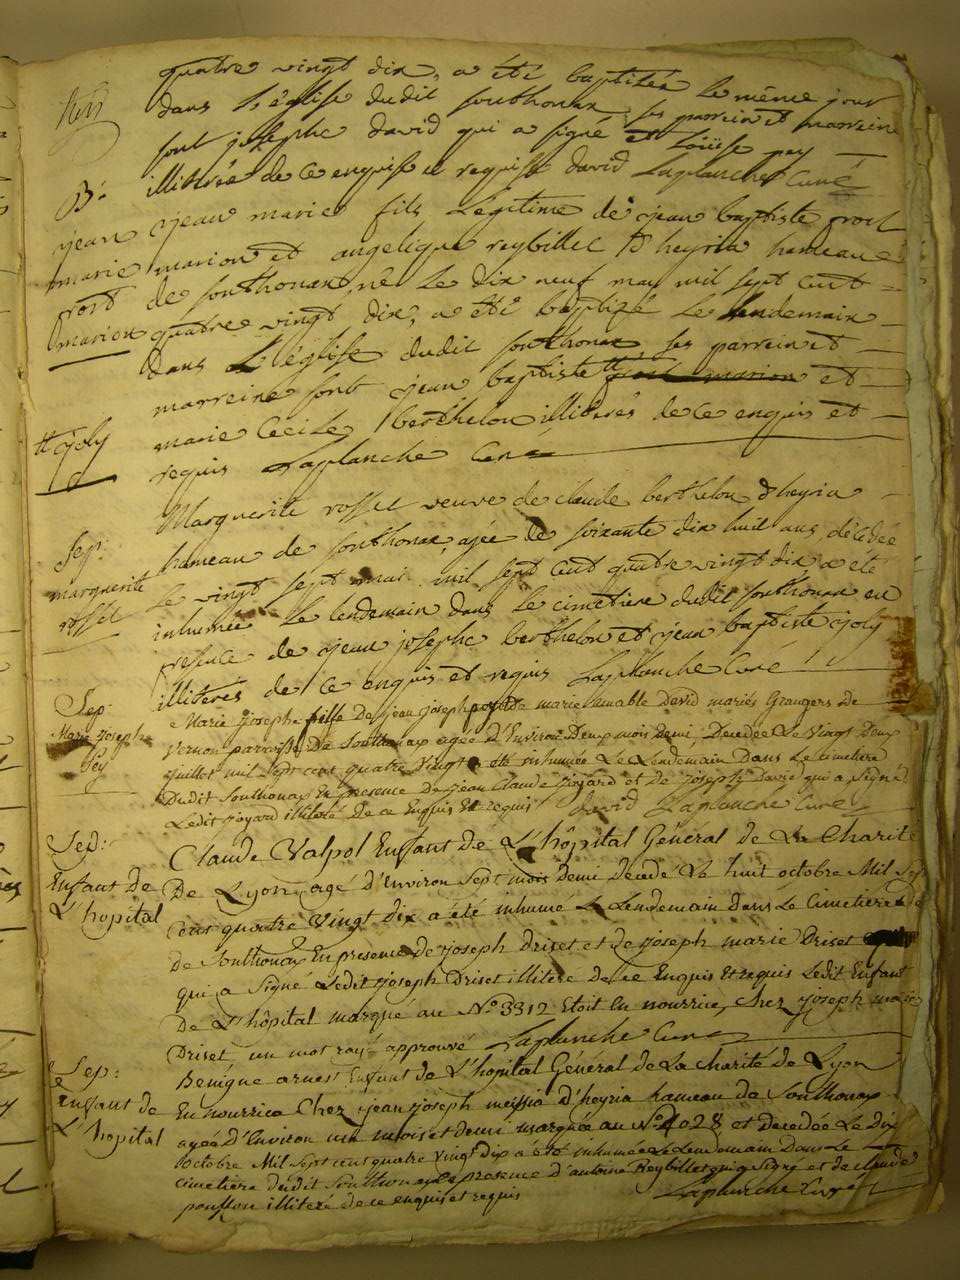 quatre vingt dix, a été baptisée le même jour
dans l'église dudit southonax ses parrein et marreine
sont joseph david qui a signé et Loüise pey
illitérée de ce enquise et requise david Laplanche Curé
B:
jean
marie
prost
marion
jean marie fils légitime de jean baptiste prost
marion et angelique reybillet d'heyria hameau
de southonax, né le dix neuf may mil sept cent
quatre vingt dix, a été baptizé le lendemain
dans l'église dudit southonax ses parrein et
marreine sont jean baptiste # prost marion et
marie Cecile berthelon illitérés de ce enquis et
requis Laplanche Curé
# joly
Sep:
marguerite
rosset
Marguerite rosset veuve de claude berthelon d'heyria
hameau de southonax, agée de soixante dix huit ans, décédée
le vingt sept mai mil sept cent quatre vingt dix a été
inhumée le lendemain dans le cimetiere dudit southonax en
presence de jean joseph berthelon et jean baptiste joly
illitérés de ce enquis et requis Laplanche Curé
Sep:
Marie joseph
pey
Marie joseph fille de jean joseph pey et de marie amable David mariés Grangers de
Vernon parroisse de Southonax agée d'Environ Deux mois Demi, Decedée Le Vingt Deux
juillet mil Sept cent quatre Vingt a été inhumée Le Lendemain Dans Le cimetiere
Dudit Southonax En presence de jean Claude poyard et de joseph David qui a Signé
Ledit poyard illiteré de ce Enquis Et requis david Laplanche Curé
Sep:
Enfant de
L'hopital
Claude Valpol Enfant de L'hôpital Général de La Charité
De Lyon, agé d'environ Sept mois demi decedé Le huit octobre Mil Sept
cent quatre Vingt dix a été inhumé Le Lendemain Dans Le Cimetiere
de Southonax En presence de joseph Driset et de joseph marie Driset
qui a Signé Ledit joseph Driset illiteré de ce Enquis Et requis Ledit Enfant
De L'hôpital marqué au N.º 3312 Etoit en nourrice, chez joseph marie
Driset, un mot rayé approuvé Laplanche Curé
Sep:
Enfant de
L'hopital
Benigne arnest Enfant de L'hopital Général de La Charité de Lyon
En nourrice Chez jean joseph meissia d'heyria hameau de Southonax
agée d'Environ un mois et demi marquée au N.º 4028 et decedée Le Dix
octobre Mil Sept cent quatre Vingt Dix a été inhumée Le Lendemain Dans Le
cimetiere dudit Southonax presence d'antoine Reybillet qui a Signé et de claude
ponsson illiteré de ce enquis et requis Laplanche Curé